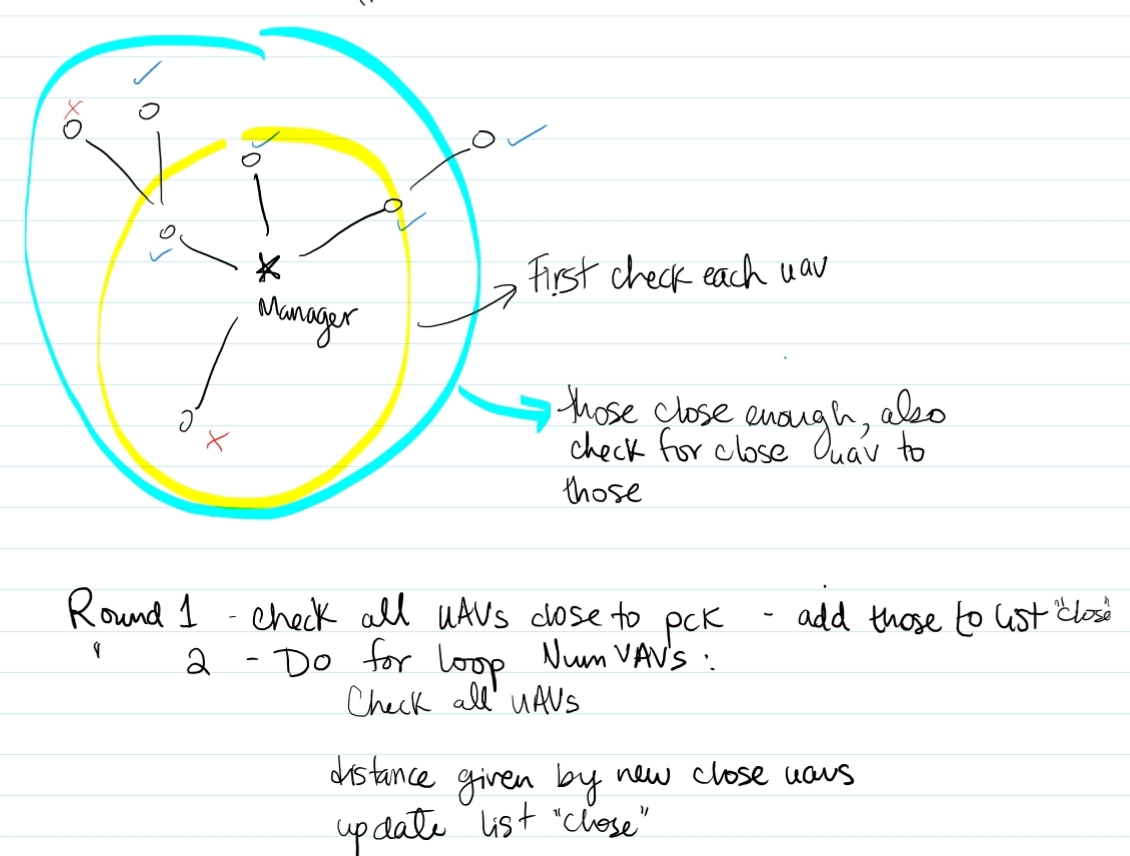 Manager
First check each uav
those close enough, also
check for close uav to
those
Round 1 - Check all UAVs close to pck - add those to list "close"
" 2 - Do for loop Num UAVs :
Check all UAVs
distance given by new close uavs
update list "close"